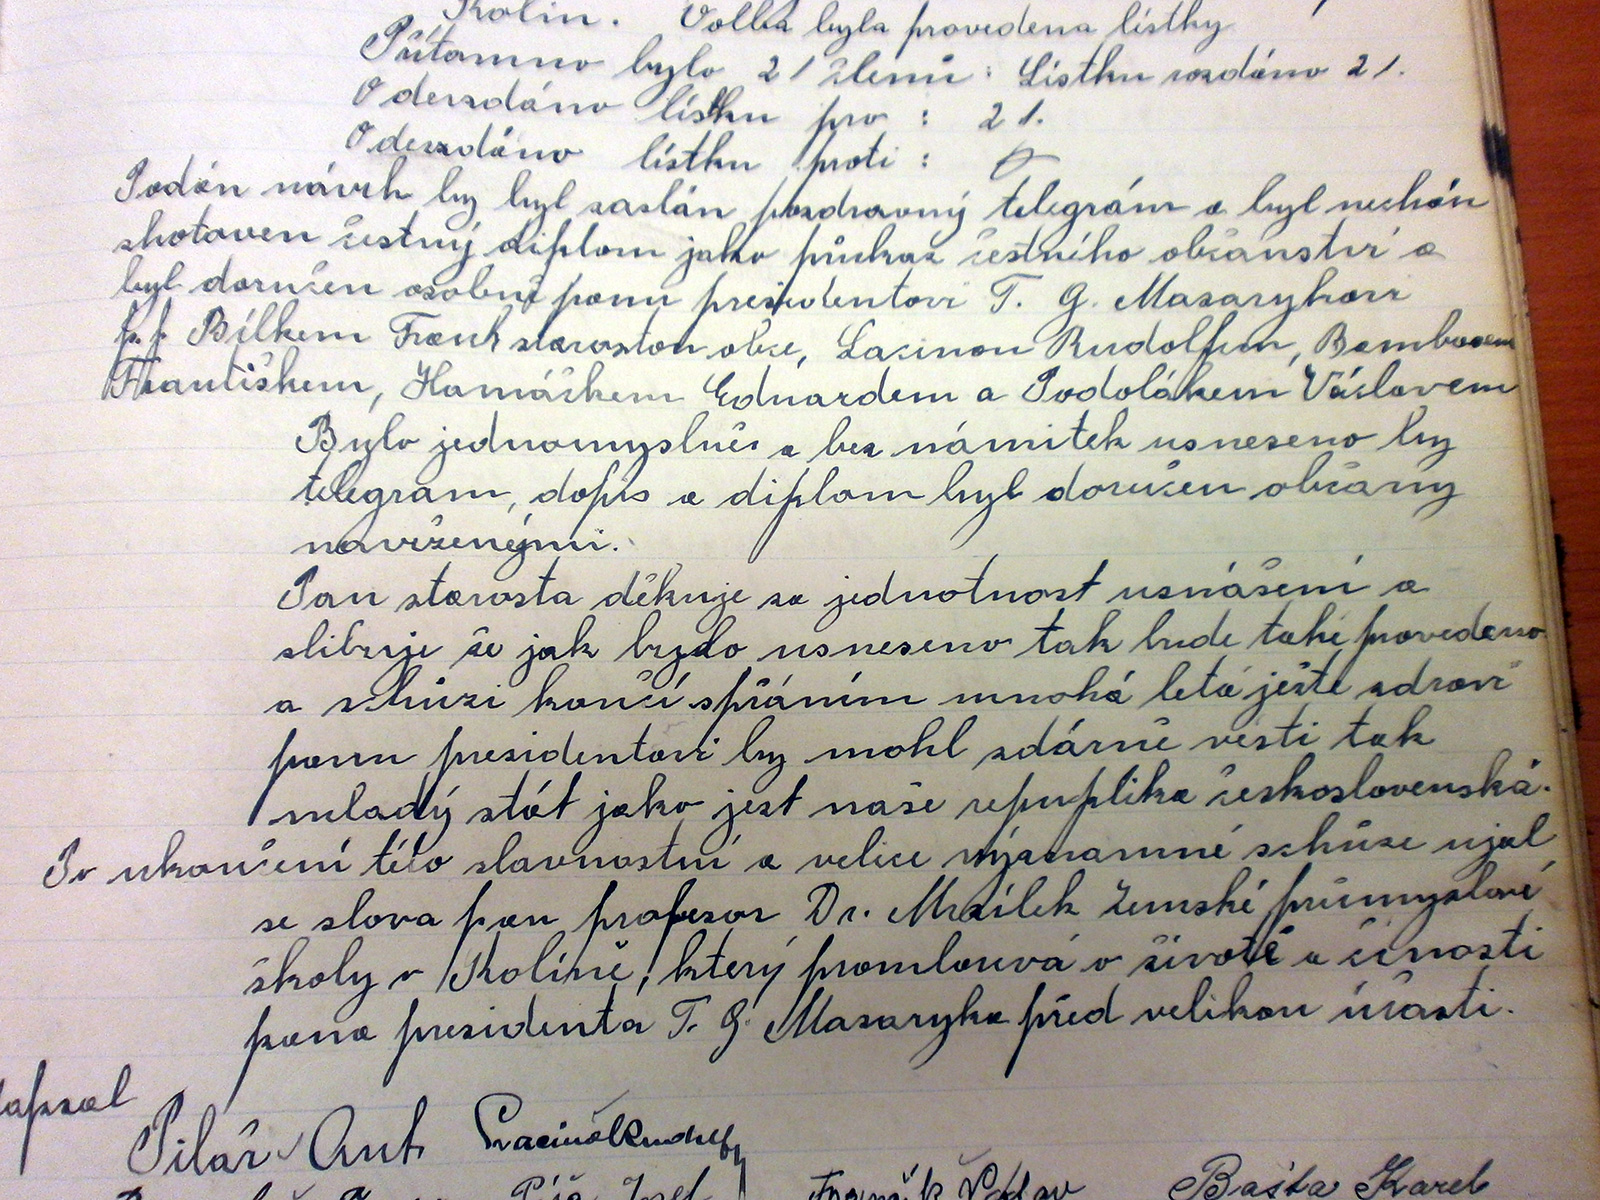 Kolín. Volba byla provedena lístky
Přítomno bylo 21 členů: Lístku rozdáno 21.
Oderzdáno lístku pro : 21.
Oderzdáno lístku proti : 0
Podán návrh by byl zaslán pozdravný telegrám a byl nechán
zhotoven čestný diplom jako průkaz čestního občanství a
byl doručen osobně panu presidentovi T. G. Masarykovi
p.p. Bílkem Frant starostou obce, Lacinou Rudolfem, Bambasem
Františkem, Hamáčkem Eduardem a Podolákem Václavem
Bylo jednomyslně a bez námitek usneseno by
telegram, dopis a diplom byl doručen občany
navrženými.
Pan starosta děkuje za jednotnost usnášení a
slibuje že jak bylo usneseno tak bude také provedeno
a schůzi končí spřáním mnohá leta ještě zdraví
panu presidentovi by mohl zdárně vésti tak
mladý stát jako jest naše repuplika československá.
Po ukončení této slavnostní a velice významné schůze ujal
se slova pan profesor Dr. Mrzílek zemské průmyslové
školy v Kolíně, který promlouvá o životě a činosti
pana presidenta T. G. Masaryka před velikou účastí.
Zapsal
Pilař Ant. Lacina Rudolf
Josef Václav Bašta Karel